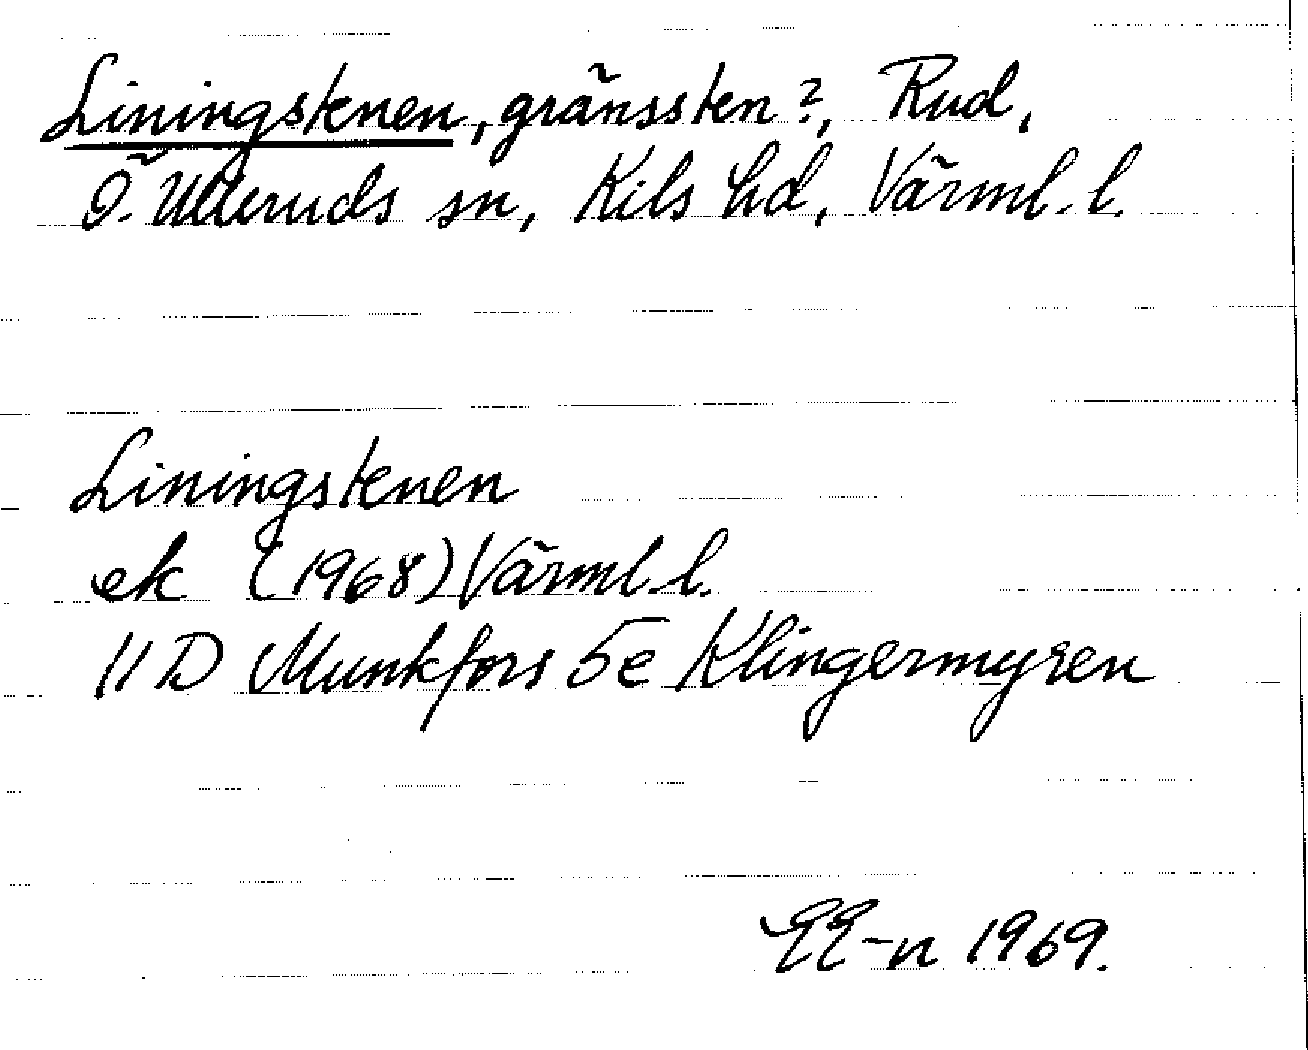 Liningstenen, gränssten?, Rud,
Ö. Ulleruds sn, Kils hd, Värml. l.
Liningstenen
ek (1968) Värml. l.
11D Munkfors 5e Klingermyren
1969.